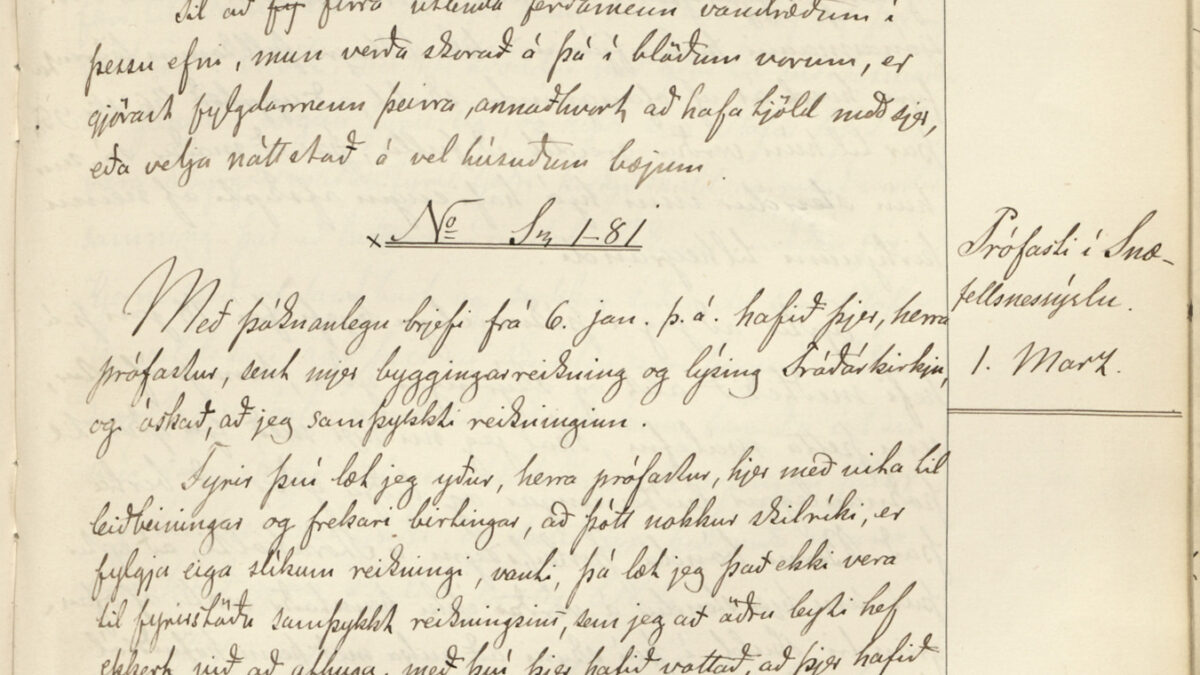 Til að firra útlenda ferðamenn vandræðum í
þessu efni, mun verða skorað á þá í blöðum vorum, er
gjörast fylgdarmenn þeirra, annaðhvort að hafa tjöld með sjer,
eða velja náttstað á vel húsuðum bæjum.
x No 1-81
Prófasti í Snæ-
fellsnessýslu.
1. Marz.
Með þóknanlegu brjefi frá 6. jan. þ. á. hafið þjer, herra
prófastur, sent mjer byggingarreikning og lýsing Fróðárkirkju,
og óskað, að jeg samþykkti reikninginn.
Fyrir því læt jeg yður, herra prófastur, hjer með vita til
leiðbeiningar og frekari birtingar, að þótt nokkur skilríki, er
fylgja eiga slíkum reikningi, vanti, þá læt jeg það ekki vera
til fyrirstöðu samþykkt reikningsins, sem jeg að öðru leyti hef
ekkert við að athuga, með því þjer hafið vottað, að þjer hafið